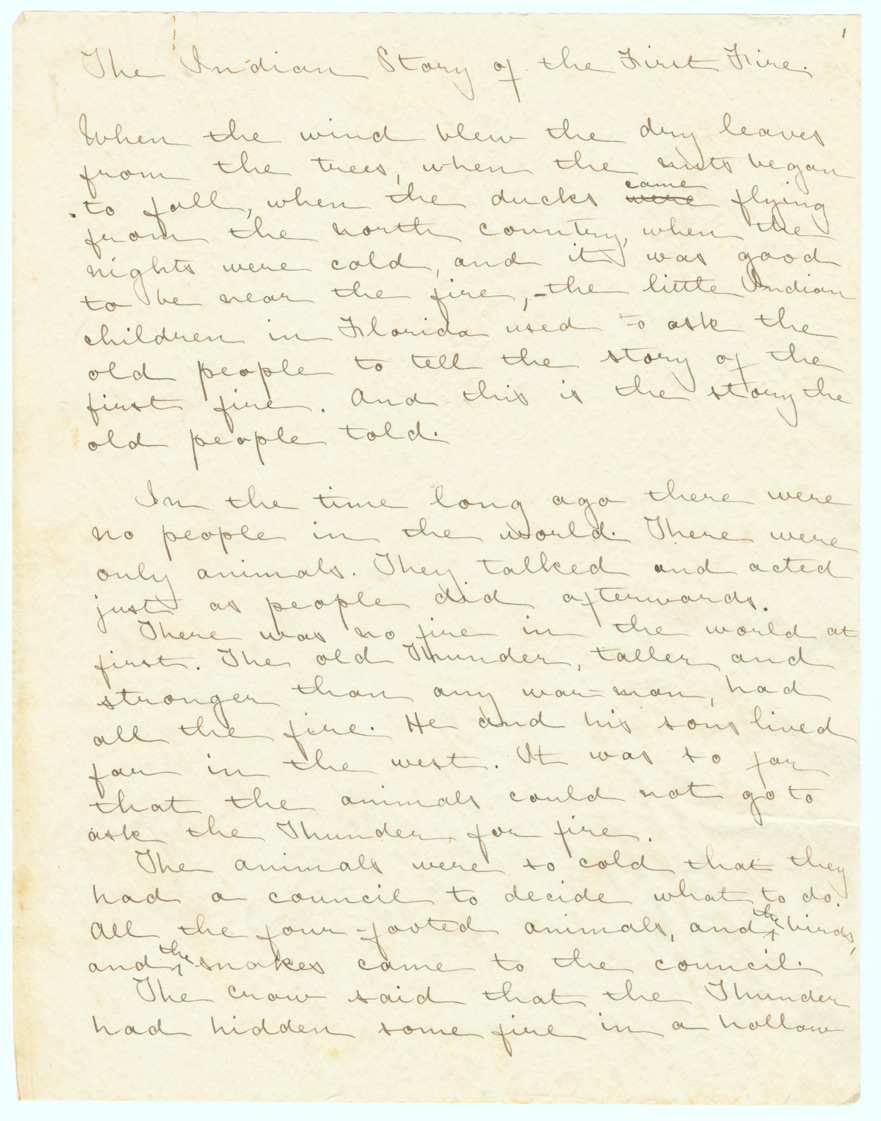 1
The Indian Story of the First Fire.
When the wind blew the dry leaves
from the trees, when the nuts began
to fall, when the ducks ~~were~~ came flying
from the north country, when the
nights were cold, and it was good
to be near the fire, - the little Indian
children in Florida used to ask the
old people to tell the story of the
first fire. And this is the story the
old people told.
In the time long ago there were
no people in the world. There were
only animals. They talked and acted
just as people did afterwards.
There was no fire in the world at
first. The old Thunder, taller and
stronger than any war-man, had
all the fire. He and his sons lived
far in the west. It was so far
that the animals could not go to
ask the Thunder for fire.
The animals were so cold that they
had a council to decide what to do.
All the four-footed animals, and the birds,
and the snakes came to the council.
The crow said that the Thunder
had hidden some fire in a hollow